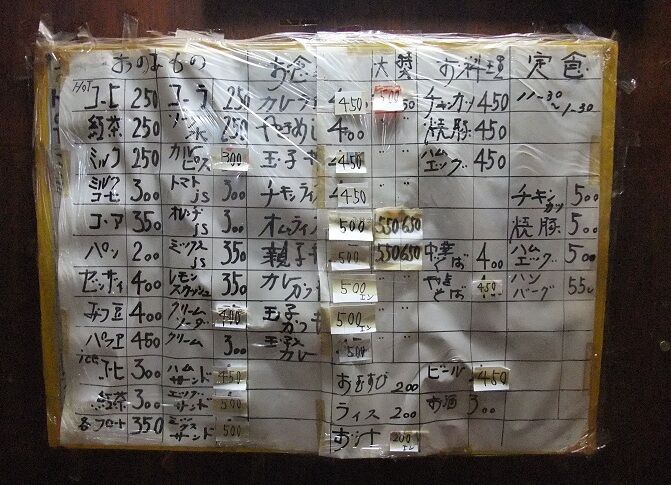 おのみもの お食 大 お料理 定食
HOT コーヒ 250 コーラ 250 カレー 450 500 50 チキンカツ 450 11-30~1-30
紅茶 250 250 やきめし 400 〃 〃 焼豚 450
ミルク 250 カルピス 300 玉子 450 〃 〃 ハムエッグ 450
ミルクコーヒ 300 トマトjs 300 チキンライ 450 〃 〃 チキンカツ 500
ココア 350 オレンヂjs 300 オムライ 500 550 650 焼豚 500
パン 200 ミックスjs 350 親子 500 550 650 中華そば 400 ハムエッグ 500
ゼンザイ 400 レモンスカッシュ 350 カレーカツ 500エン 〃 〃 やきそば 450 ハンバーグ 550
みつ豆 400 クリームソーダ 400 玉子カツ 500エン 〃 〃
パフェ 450 クリーム 300 玉子カレー 500 〃 〃
ice コーヒ 300 ハムサンド 450 おむすび 200 ビール 450
紅茶 300 エッグサンド 500 ライス 200 お酒 300
各フロート 350 ミックスサンド 500 お汁 200エン